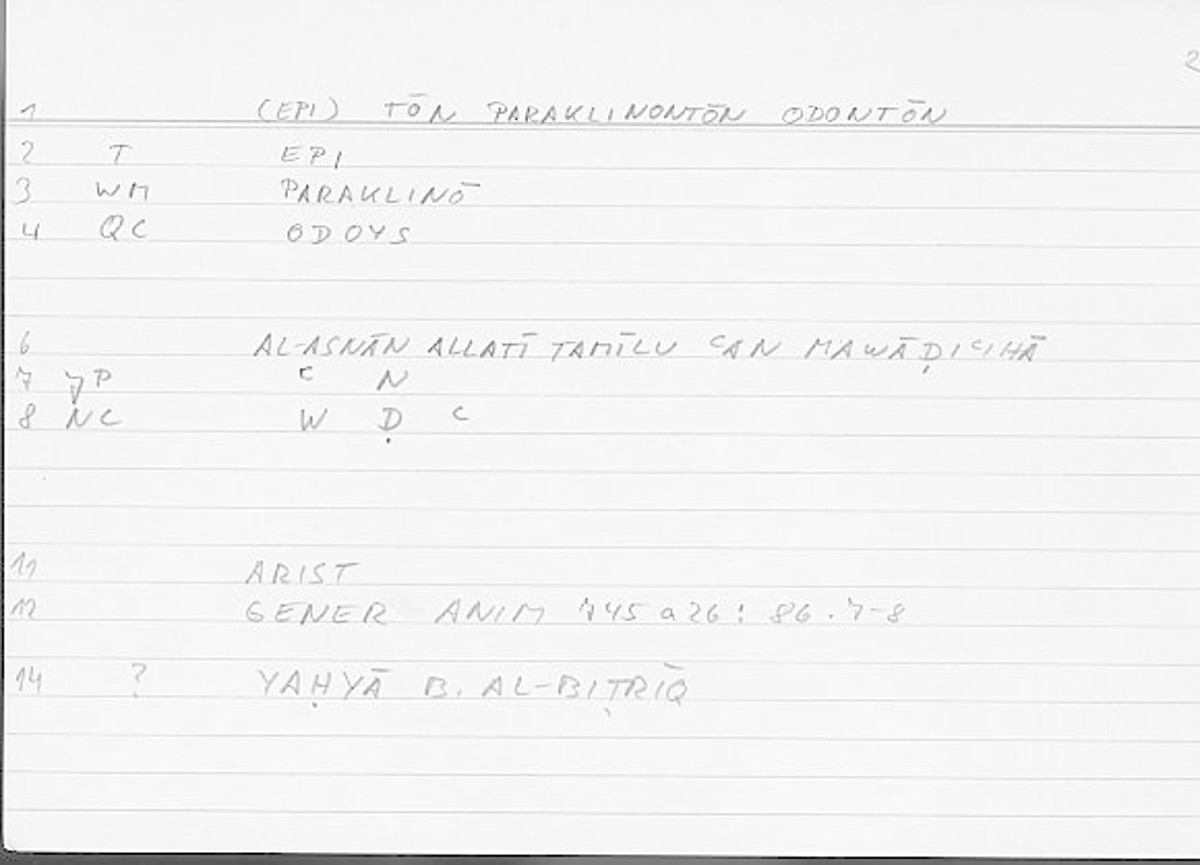 2
1 (EPI) TŌN PARAKLINONTŌN ODONTŌN
2 T EPI
3 WM PARAKLINŌ
4 QC ODOYS
6 AL-ASNĀN ALLATĪ TAMĪLU ʿAN MAWĀḌIʿIHĀ
7 YP ʿ N
8 NC W Ḍ ʿ
11 ARIST
12 GENER ANIM 745 a 26 : 86.7-8
14 ? YAḤYĀ B. AL-BIṬRĪQ